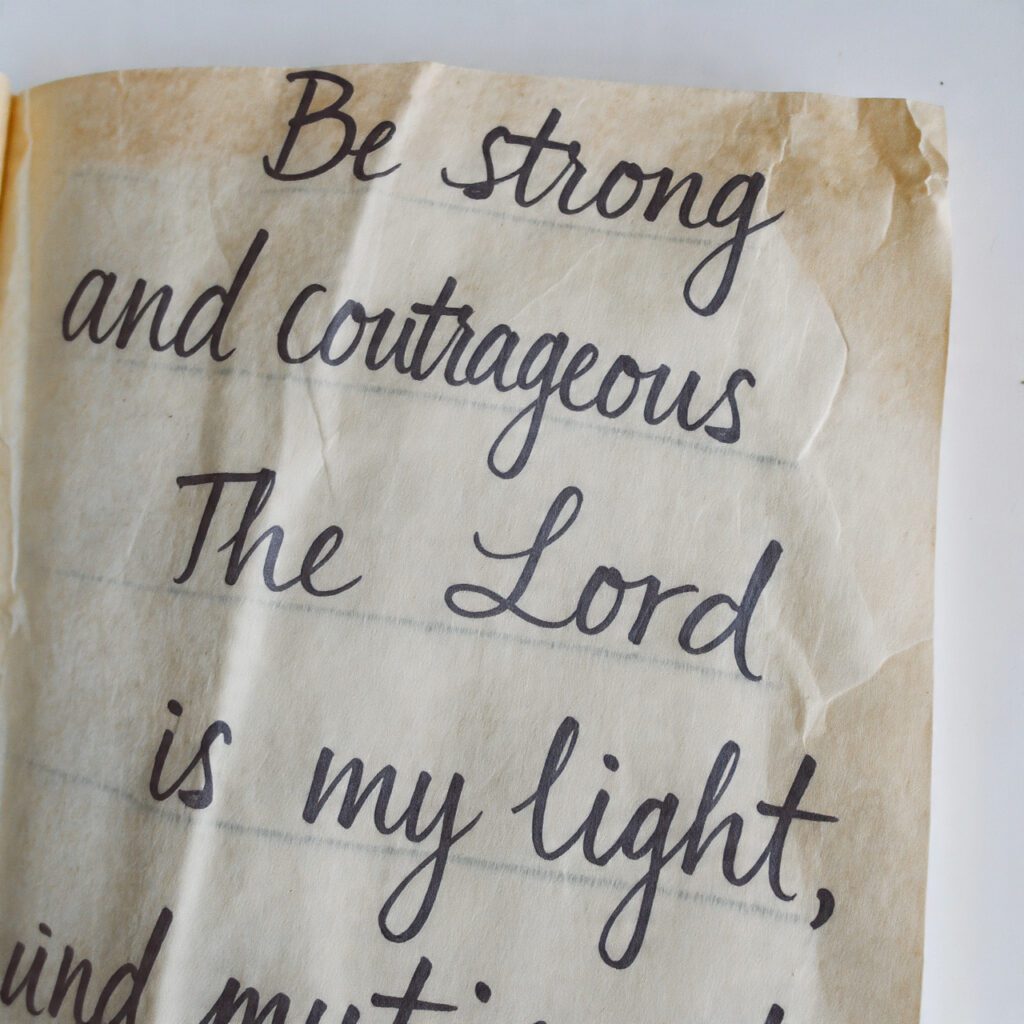 Be strong
and coutrageous
The Lord
is my light,